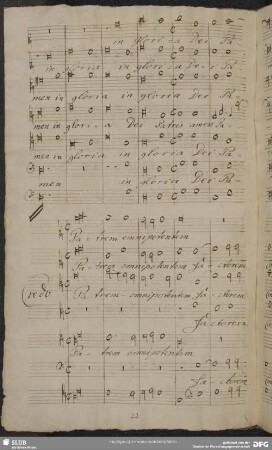 in glori-a Dei Pa-
in gloria in glori-a Dei Pa-
men in gloria in gloria Dei Pa-
men in glori-a Dei Patris amen Pa-
men in gloria in gloria Dei Pa-
men in gloria Dei Pa-
Pa-trem omnipotentem
Pa-trem omnipotentem fa-ctorem
Credo
Pa-trem omnipotentem fa-ctorem
fa-ctorem
Pa-trem omnipotentem
fa-ctorem
22
SLUB
DFG